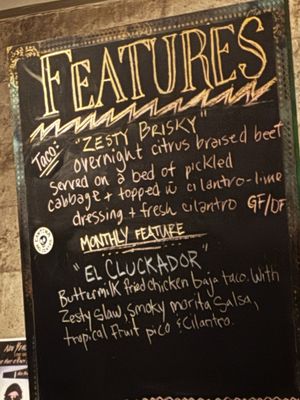 FEATURES
Taco: "ZESTY BRISKY"
overnight citrus braised beef
served on a bed of pickled
cabbage + topped w cilantro-lime
dressing + fresh cilantro GF/DF
MONTHLY FEATURE
"EL CLUCKADOR"
Buttermilk fried chicken baja taco. With
Zesty slaw, smoky morita Salsa,
tropical fruit pico & Cilantro.